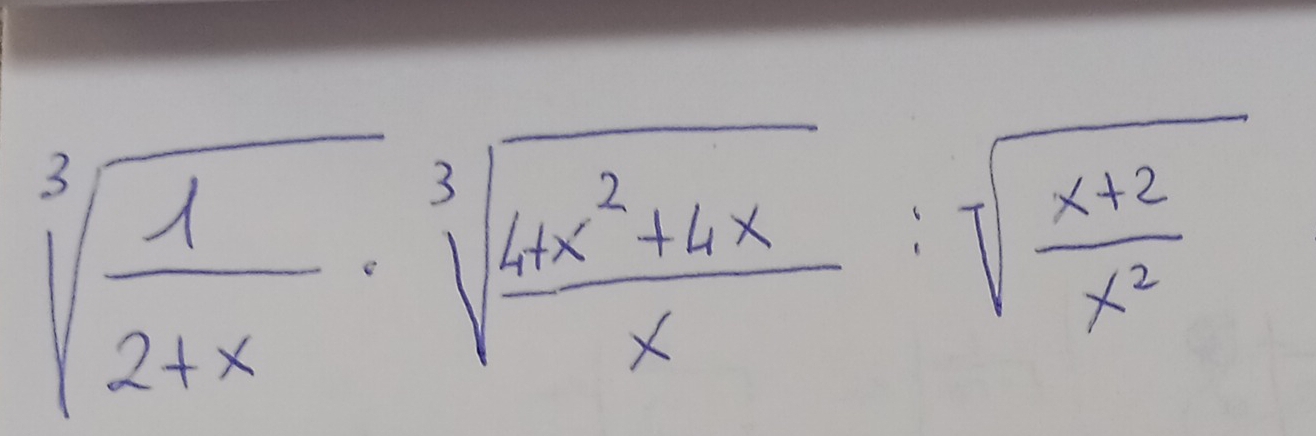 ∛(1/(2+x)) · ∛((4+x²+4x)/x) : √((x+2)/x²)